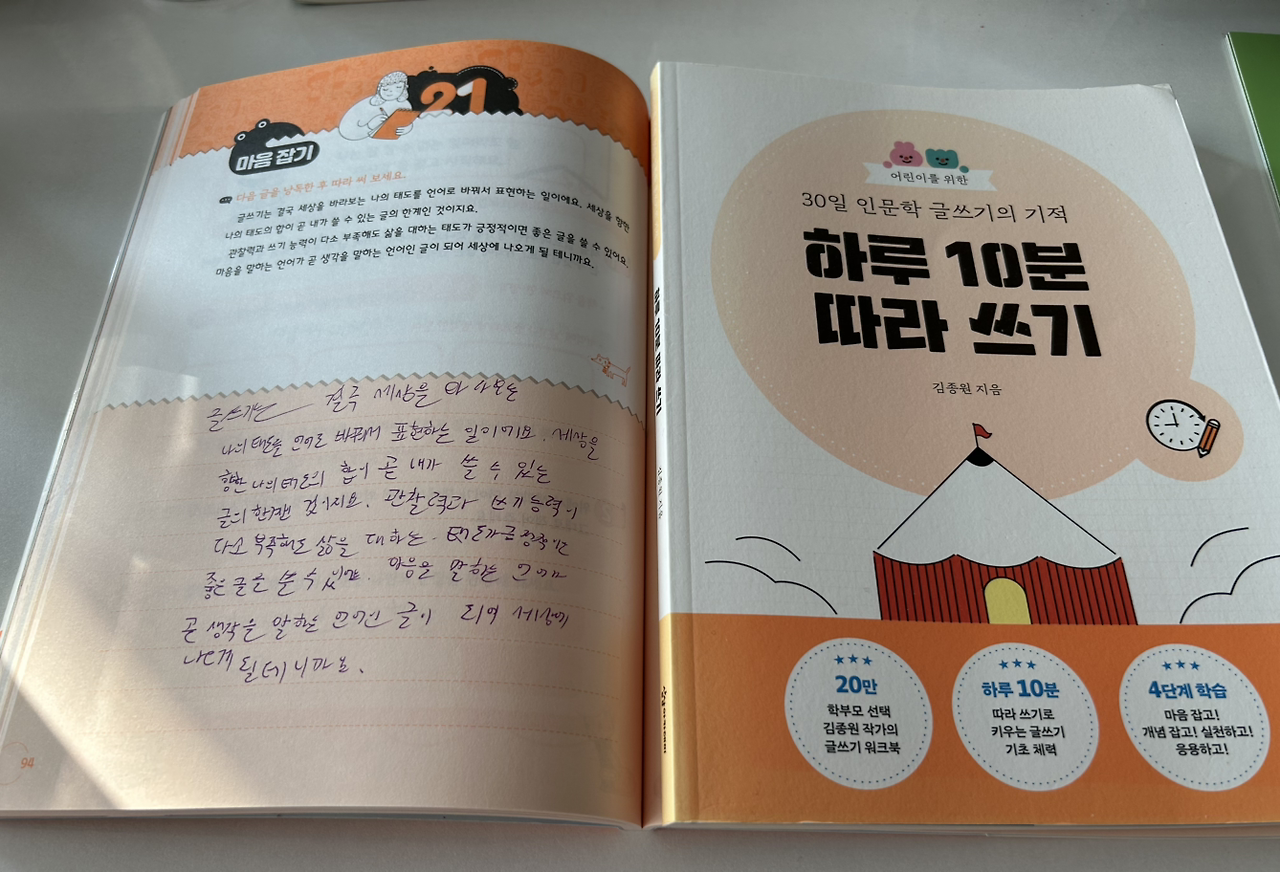 21
마음 잡기
다음 글을 낭독한 후 따라 써 보세요.
글쓰기는 결국 세상을 바라보는 나의 태도를 언어로 바꿔서 표현하는 일이에요. 세상을 향한
나의 태도의 합이 곧 내가 쓸 수 있는 글의 한계인 것이지요.
관찰력과 쓰기 능력이 다소 부족해도 삶을 대하는 태도가 긍정적이면 좋은 글을 쓸 수 있어요.
마음을 말하는 언어가 곧 생각을 말하는 언어인 글이 되어 세상에 나오게 될 테니까요.
글쓰기는 결국 세상을
나의 태도를 언어로 바꿔서 표현하는 일이에요. 세상을
향한 나의 태도의 합이 곧 내가 쓸 수 있는
글의 것이지요. 관찰력과 쓰기능력이
다소 부족해도 삶을 대하는 태도가
좋은 글을 쓸 수 마음을 말하는
곧 생각을 말하는 글이 되어 세상에
나오게 될 테니까요.
94
하루 10분 따라 쓰기
김종원 지음
어린이를 위한
30일 인문학 글쓰기의 기적
하루 10분
따라 쓰기
김종원 지음
20만
학부모 선택
김종원 작가의
글쓰기 워크북
하루 10분
따라 쓰기로
키우는 글쓰기
기초 체력
4단계 학습
마음 잡고!
개념 잡고! 실천하고!
응용하고!